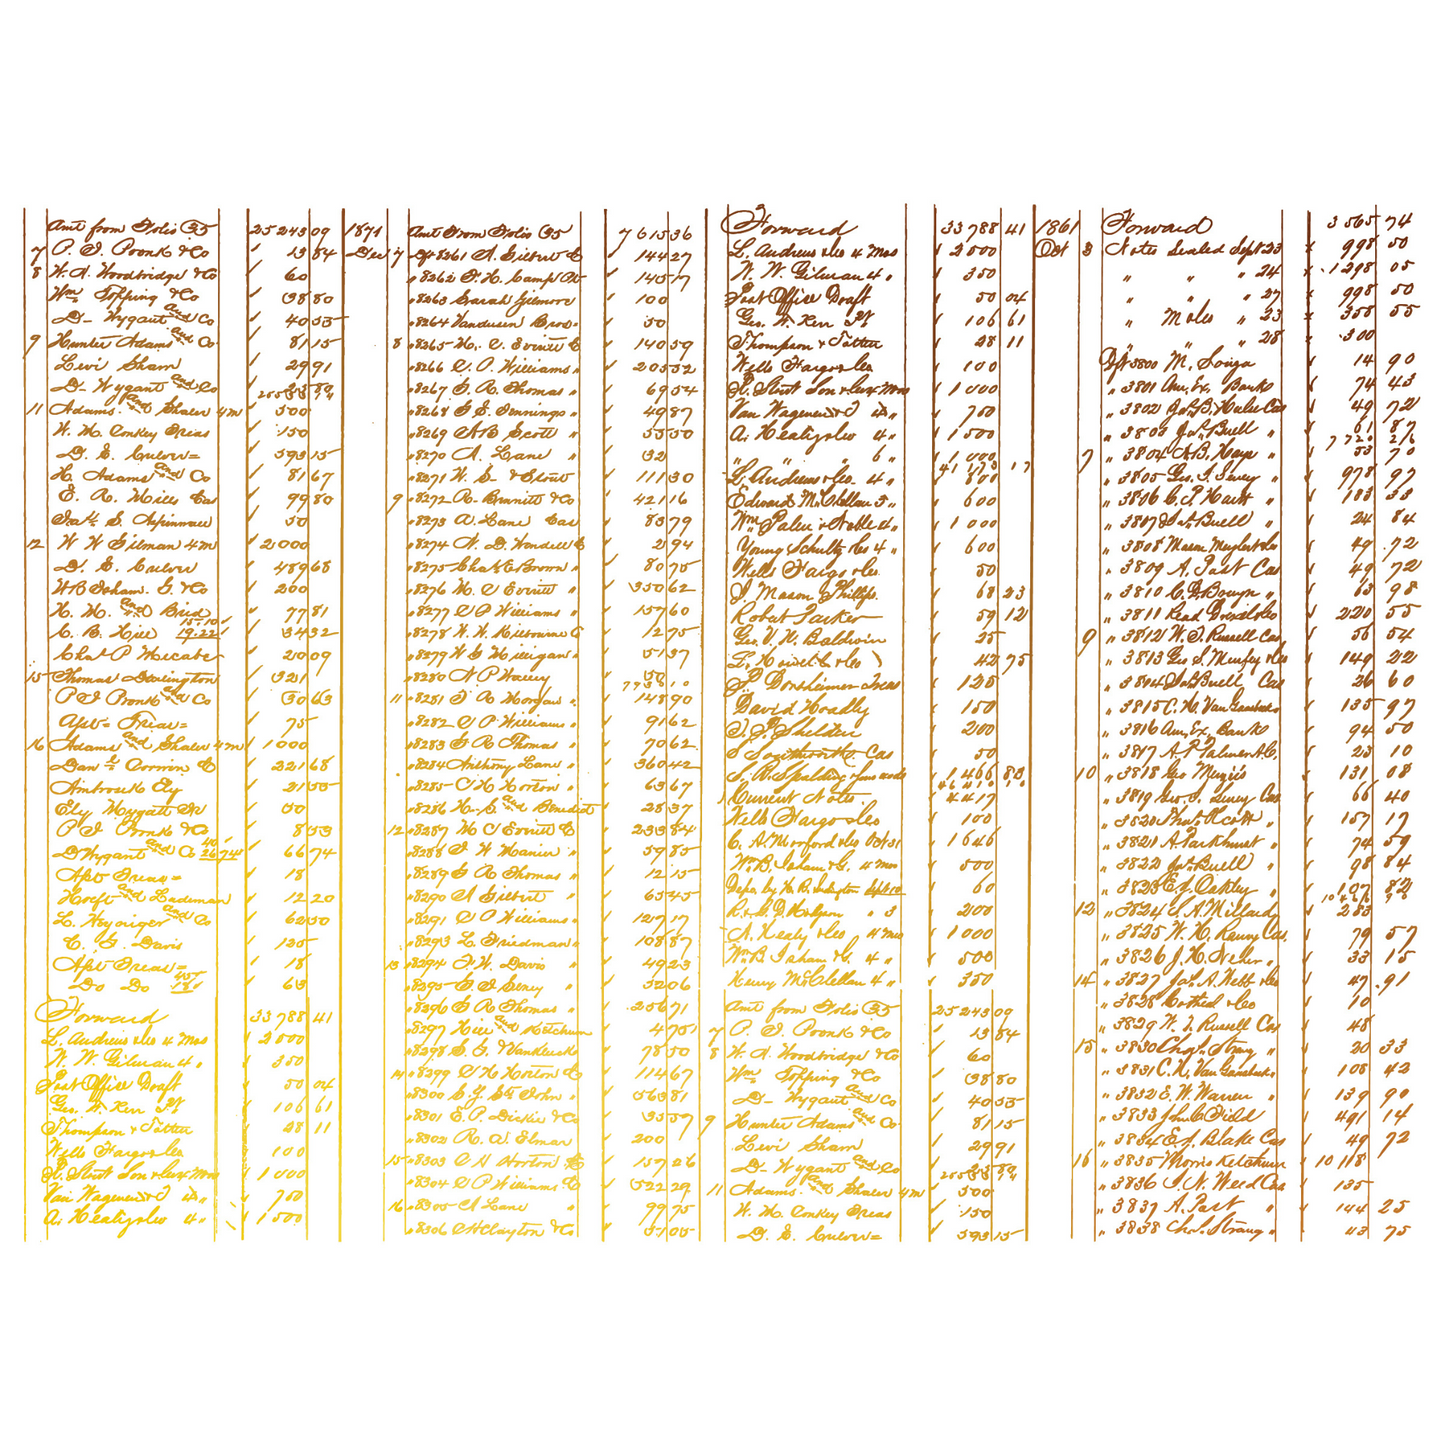 Amt from Folio 35 25243 09
7 P. I. Pronk & Co 13 84
8 W. A. Woodbridge & Co 60
Wm Topping & Co 80
D- Wygant and Co 40 55
9 Hunter Adams and Co 81 15
Levi Sham 29 91
D- Wygant and Co
11 Adams and Shaler 4 m 500
W. M. Conkey Treas 150
D. E. Culver = 593 15
H. Adams and Co 81 67
E. R. Mills Cas 99 80
50
12 W W Gilman 4 m 2000
D. E. Culver 489 68
200
H. M. and Bird 77 81
C. B. Hill 19.22 34 32
Chas P Mccabe 20 09
15 Thomas Darlington 321
P I Pronk and Co 30 63
Apst = Treas = 75
16 Adams and Shaler 4 m 1000
Dan Corwin 321 68
Ambrose Ely 21 55
Ely Hyatt 50
P I Pronk & Co 8 53
D Wygant and Co 26 74 66 74
Apst Treas = 18
Hoeft and Lademan 12 20
L. Heyniger and Co 62 50
C. G. Davis 125
Apst Treas = 18
Do Do 63
Forward 33788 41
L. Andrews & Co 4 Mos 2500
W. W. Gilman 4 " 350
Post Office Draft 50 04
Geo. W. Kerr 106 61
Thompson & 28 11
Wells Fargo & Co 100
Strut Son & Co 4 Mos 1000
Van Wagenen 4 " 700
A. Healy & Co 4 " 1500
1871 Amt From Folio 35 7615 36
Dec 7 Dft 8261 A. Gilbert C 144 27
" 8262 T. H. Camp 145 17
" 8263 Sarah Gilmore 100
" 8264 Vandusen Bros. 50
8 " 8265 M. C. Everitt C 140 59
" 8266 C. P. Williams " 205 52
" 8267 G. R. Thomas " 69 54
" 8268 G. E. Jennings " 49 87
" 8269 A B Scott " 55 50
" 8270 A. Lane " 32
" 8271 W. S. & Stout 111 30
9 " 8272 R. Bennitt & Co 42 16
" 8273 A. Lane Cas 83 79
" 8274 N. D. Wendell C 2 94
" 8275 Chas C Brown " 80 75
" 8276 M. C Everitt " 350 62
" 8277 C P Williams " 157 60
" 8278 W. W. Kilbourne C 12 75
" 8279 W G Milligan " 51 37
" 8280 N P Wainy 50
11 " 8281 G R Morgan " 148 90
" 8282 C P Williams " 91 62
" 8283 G R Thomas " 70 62
" 8284 Anthony Lane " 360 42
" 8285 C H Horton " 63 67
" 8286 H. S. and Benedict 28 37
12 " 8287 M C Everitt C 233 84
" 8288 I W Manier " 59 85
" 8289 G R Thomas " 12 15
" 8290 A Gilbert " 65 45
" 8291 C P Williams " 127 17
" 8293 L. Friedman " 108 87
13 " 8294 F. W. Davis " 49 23
" 8295 G I Seney " 32 06
" 8296 G R Thomas " 256 71
" 8297 Hill and Ketchum 4 75
" 8298 S. G. & Vanderske 78 50
14 " 8299 C H Horton C 114 67
" 8300 S. Y. St John " 563 81
" 8301 E. P. Dickie & Co 35 57
" 8302 R. A. Elmer 200
15 " 8303 C H Horton C 157 26
" 8304 C P Williams C 522 29
16 " 8305 A Lane " 99 75
" 8306 C H Clayton & Co 57 05
Forward 33788 41
L. Andrews & Co 4 Mos 2500
W. W. Gilman 4 " 350
Post Office Draft 50 04
Geo. W. Kerr 106 61
Thompson & 28 11
Wells Fargo & Co 100
Strut Son & Co 4 Mos 1000
Van Wagenen 4 " 700
A. Healy & Co 4 " 1500
" " 6 " 1000
L. Andrews & Co 4 " 800
Edward McClellan 5 " 600
Wm Palen & Noble 4 " 1000
Young Schultz & Co 4 " 600
Wells Fargo & Co 50
J. Mason Phillips 68 23
Robert Tarker 59 12
Geo. V. H. Baldwin 25
L. Howitt & Co 42 75
P Dorsheimer Treas 125
David Hoadly 150
T. J. Shelden 200
S Southwork Cas 50
S. B. Spalding 1466 83
Current Notes 4417
Wells Fargo & Co 100
C. A. Morford & Co Oct 31 1646
Wm B. Isham & G. 4 mos 500
Depr by H B. Sept 12 60
R. & G. D. Halpen " 3 200
A. Healy & Co 4 Mos 1000
Wm B Isham & G. 4 " 500
Henry McClellan 4 " 350
Amt from Folio 35 25243 09
7 P. I. Pronk & Co 13 84
8 W. A. Woodbridge & Co 60
Wm Topping & Co 80
D- Wygant and Co 40 55
9 Hunter Adams and Co 81 15
Levi Sham 29 91
D- Wygant and Co
11 Adams and Shaler 4 m 500
W. M. Conkey Treas 150
D. E. Culver = 593 15
1861 Forward 3505 74
Oct 3 Notes Sealed Sept 23 998 50
" " " 24 1298 05
" " " 27 998 50
" M oles " 23 358 55
" " 28 300
Dft 3800 M. Souza 14 90
" 3801 Am. Ex. Bank 74 43
" 3802 Jas. B. Hulse Cas 49 72
" 3803 Jas. Buell " 61 87
7 " 3804 A. B. Hays " 53 70
" 3805 Geo. I. Seney " 978 97
" 3806 C. P. Hart " 183 33
" 3807 Jas. Buell " 24 84
" 3808 Mason Muybert & Co 49 72
" 3809 A. Past Cas 49 72
" 3810 C. D. Bouyn " 63 98
" 3811 Read Drexel & Co 220 55
9 " 3812 W. I. Russell Cas 56 54
" 3813 Geo S. Murfey & Co 149 22
" 3814 Jas. Buell Cas 26 60
" 3815 C. H. Van Gaasbeek 135 97
" 3816 Am. Ex. Bank 94 50
" 3817 A. P. Palmer A.C. 23 10
10 " 3818 Geo Mugris 131 08
" 3819 Geo. I. Seney Cas 66 40
" 3820 Thos. Scott " 157 17
" 3821 A. Parkhurst " 74 59
" 3822 Jas. Buell " 98 84
" 3823 E. J. Oakley " 197 82
12 " 3824 S. A. Millardy 283
" 3825 W. H. Ranny Cas. 79 57
" 3826 J. H. Weller " 33 15
14 " 3827 Jas. A. Webb & Co 47 91
" 3828 Cotheal & Co 10
" 3829 W. I. Russell Cas 48
15 " 3830 Chas. Strang " 20 33
" 3831 C. H. Van Gaasbeek 108 42
" 3832 E. W. Warren " 139 90
" 3833 John C Field 491 14
" 3834 E. J. Blake Cas 49 72
16 " 3835 Morris Ketchum 10118
" 3836 I. N. Weed Cas 135
" 3837 A. Past " 144 25
" 3838 Chas. Strang " 43 75